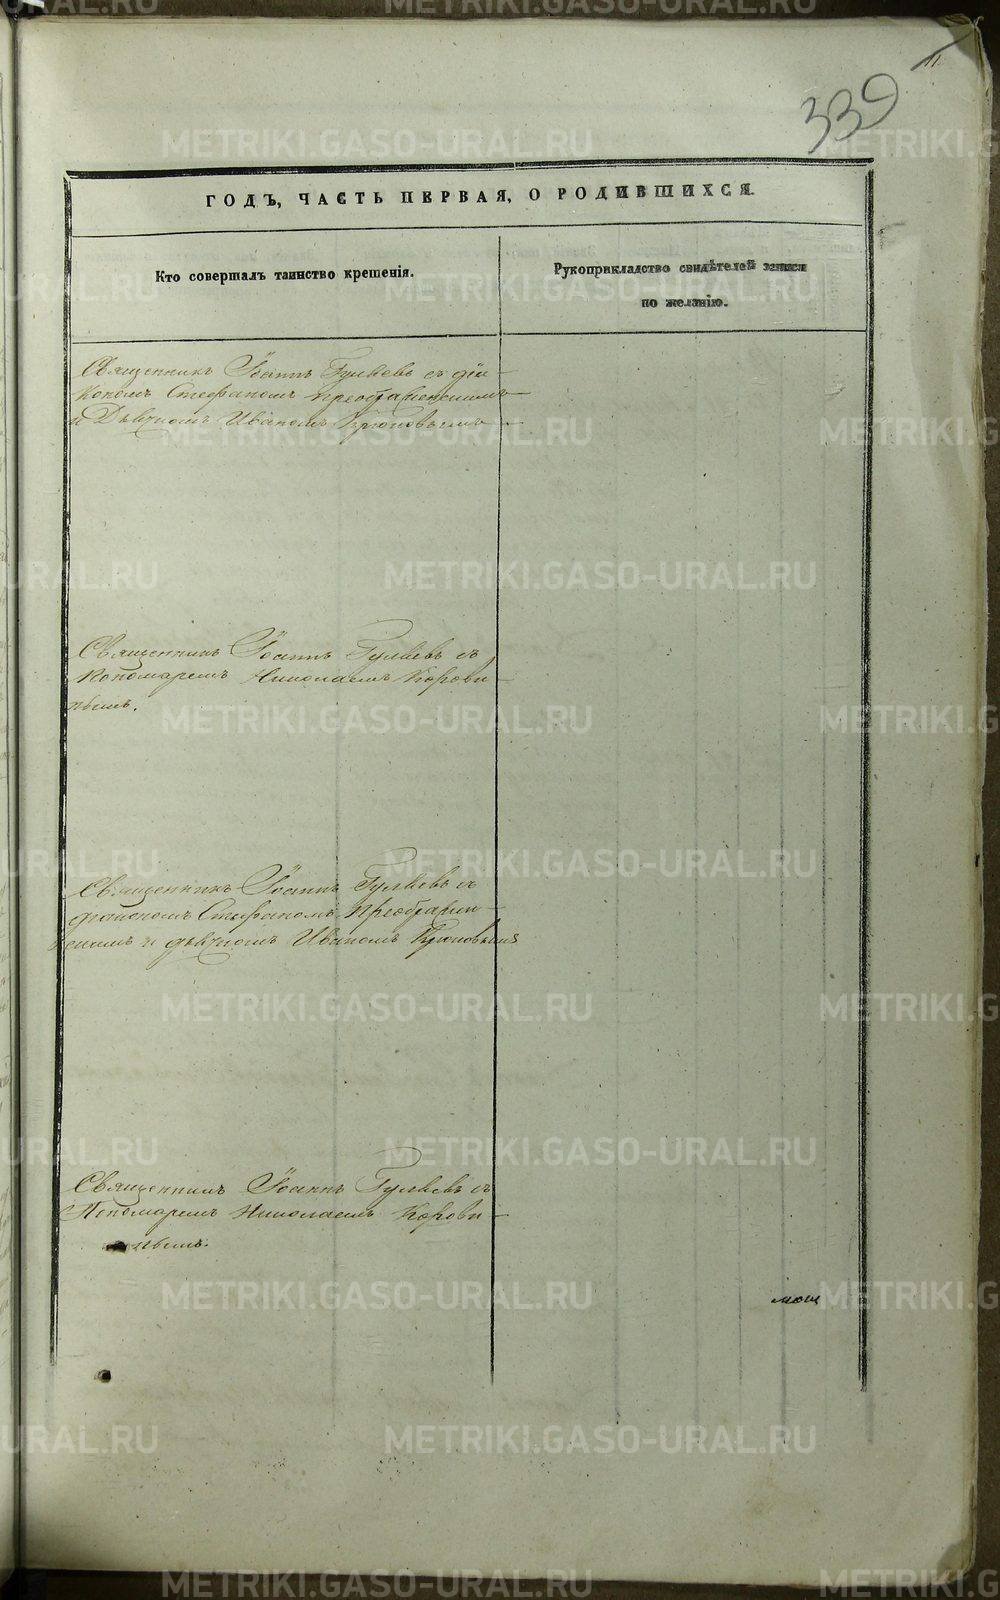 11
339
ГОДЪ, ЧАСТЬ ПЕРВАЯ, О РОДИВШИХСЯ.
Кто совершалъ таинство крещенія.
Рукоприкладство свидѣтелей записи
по желанію.
Священникъ Іоаннъ Гуляевъ съ діа-
кономъ Стефаномъ Преображенскимъ
и Дьячкомъ Иваномъ Крюковымъ
Священникъ Іоаннъ Гуляевъ съ
Пономаремъ Николаемъ Корови-
нымъ.
Священникъ Іоаннъ Гуляевъ съ
діакономъ Стефаномъ Преображен-
скимъ и дьячкомъ Иваномъ Крюковымъ
Священникъ Іоаннъ Гуляевъ съ
Пономаремъ Николаемъ Корови-
нымъ.
METRIKI.GASO-URAL.RU